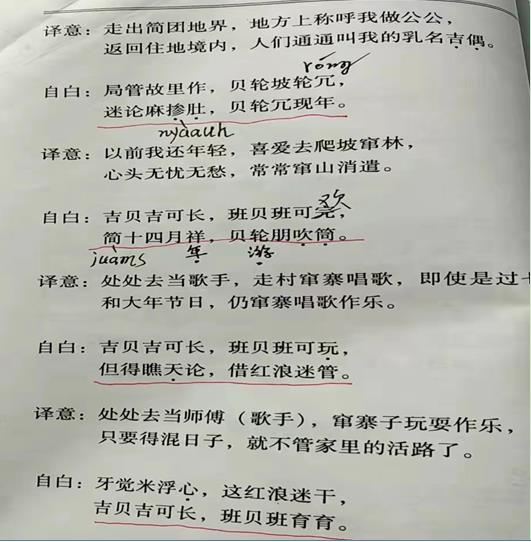 译意：走出简团地界，地方上称呼我做公公，
返回住地境内，人们通通叫我的乳名吉偶。
róng
自白：局管故里作，贝轮坡轮冗，
迷论麻掺肚，贝轮冗现年。
nyàauh
译意：以前我还年轻，喜爱去爬坡窜林，
心头无忧无愁，常常窜山消遣。
欢
自白：吉贝吉可长，班贝班可完，
简十四月祥，贝轮朋吹筒。
juams 年 游
译意：处处去当歌手，走村窜寨唱歌，即使是过
和大年节日，仍窜寨唱歌作乐。
自白：吉贝吉可长，班贝班可玩，
但得瞧天论，借红浪迷管。
译意：处处去当师傅（歌手），窜寨子玩耍作乐，
只要得混日子，就不管家里的活路了。
自白：牙觉米浮心，这红浪迷干，
吉贝吉可长，班贝班育育。